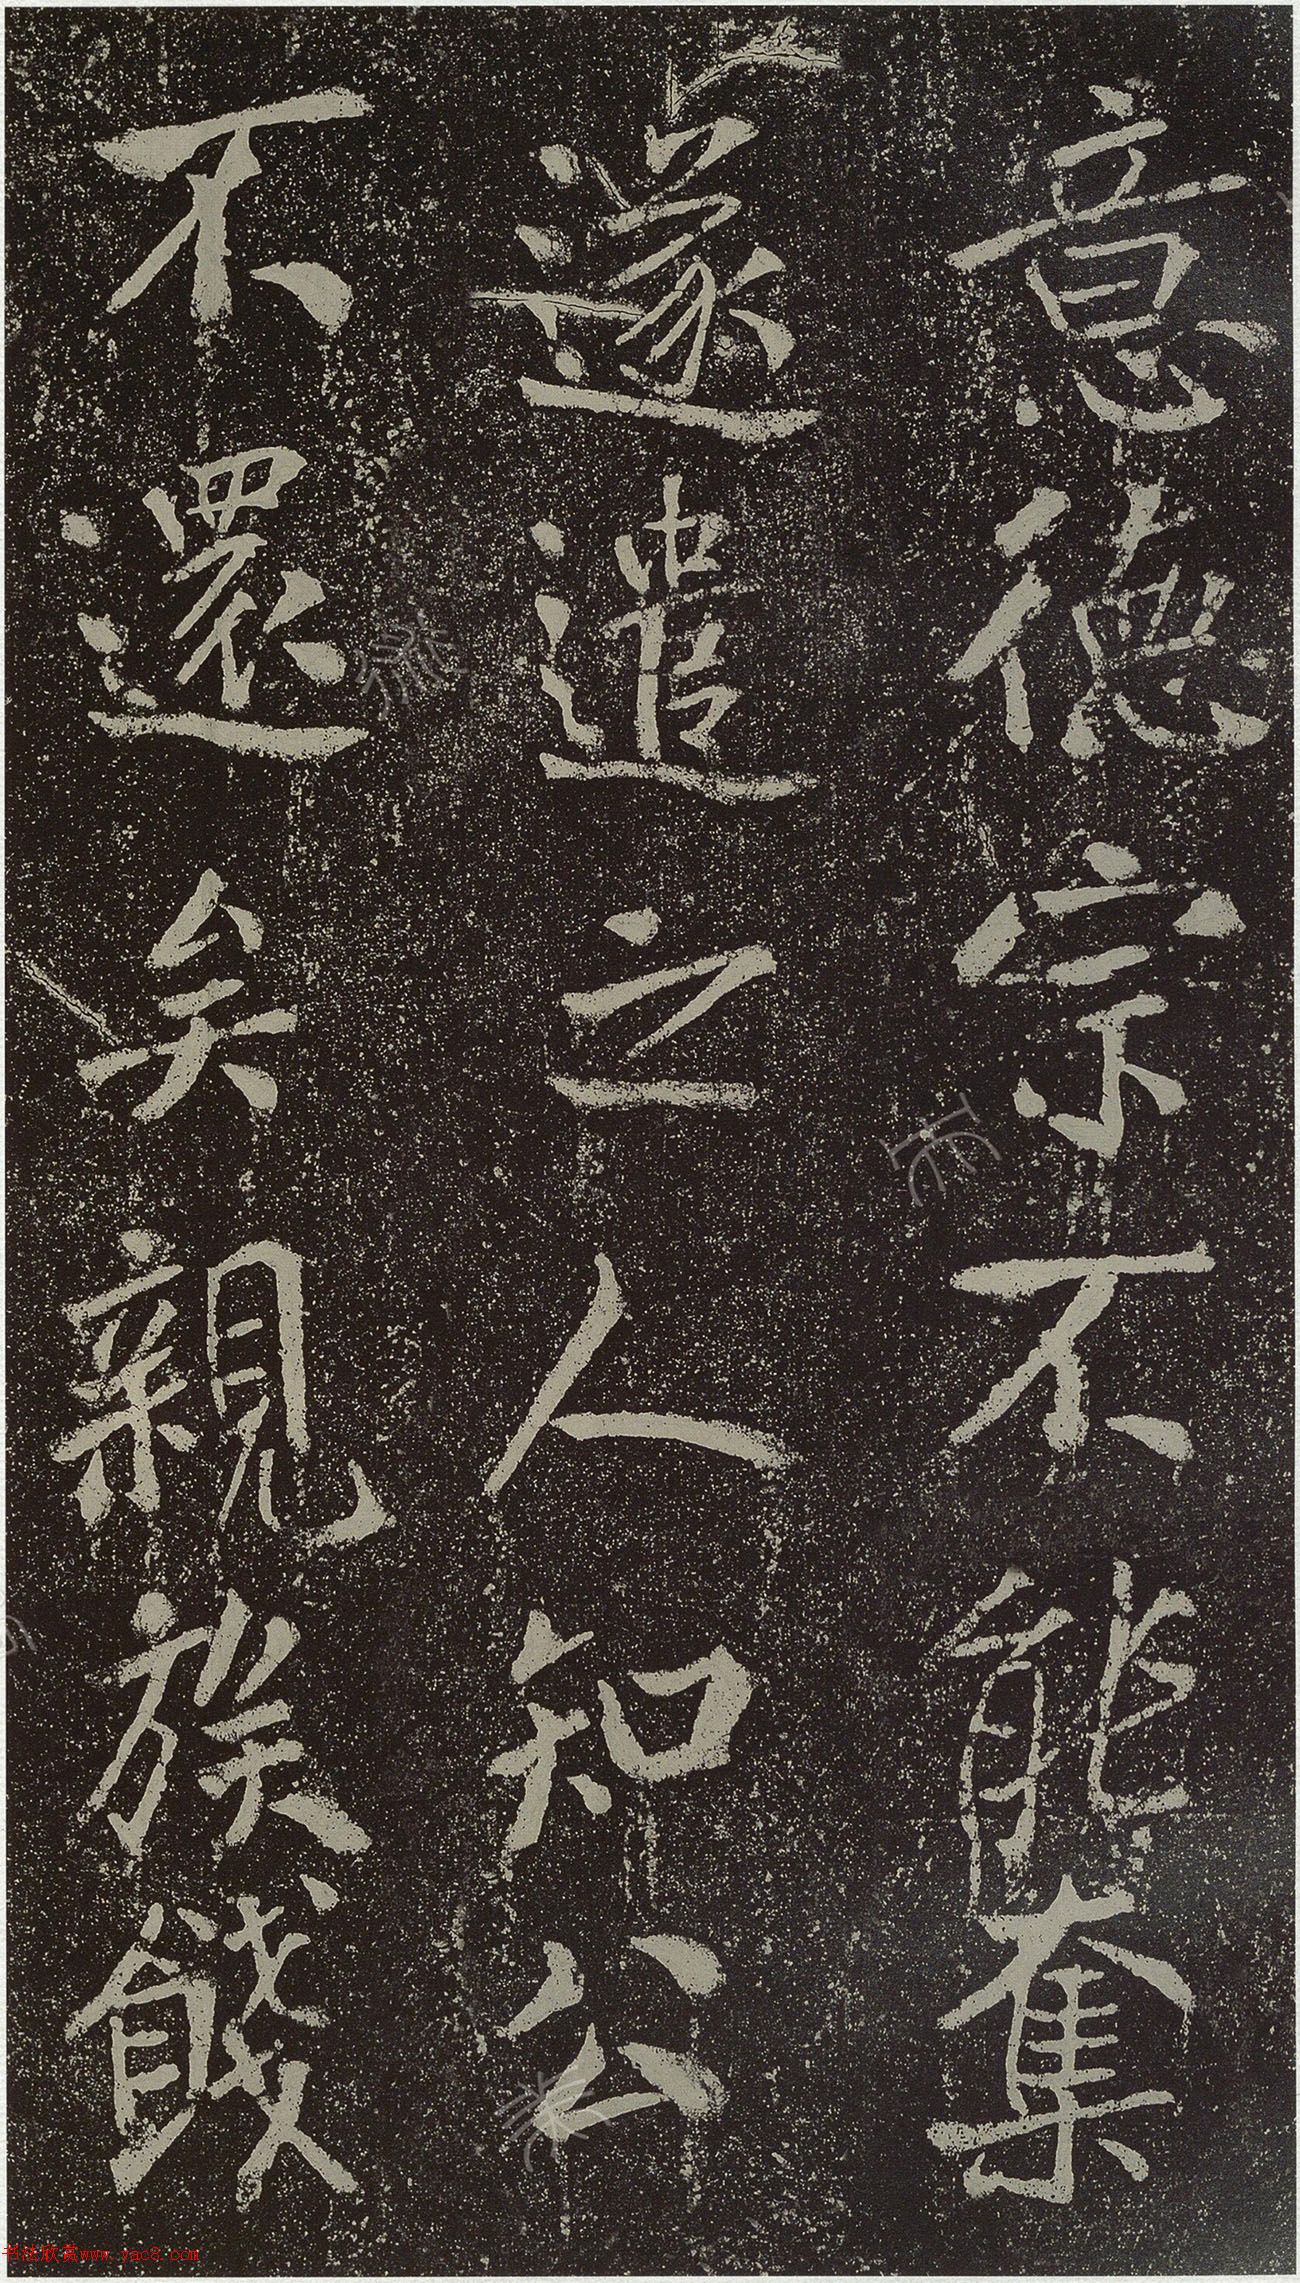 意德宗不能奪
遂遣之人知公
不還矣親族餞
书法欣赏www.yac8.com